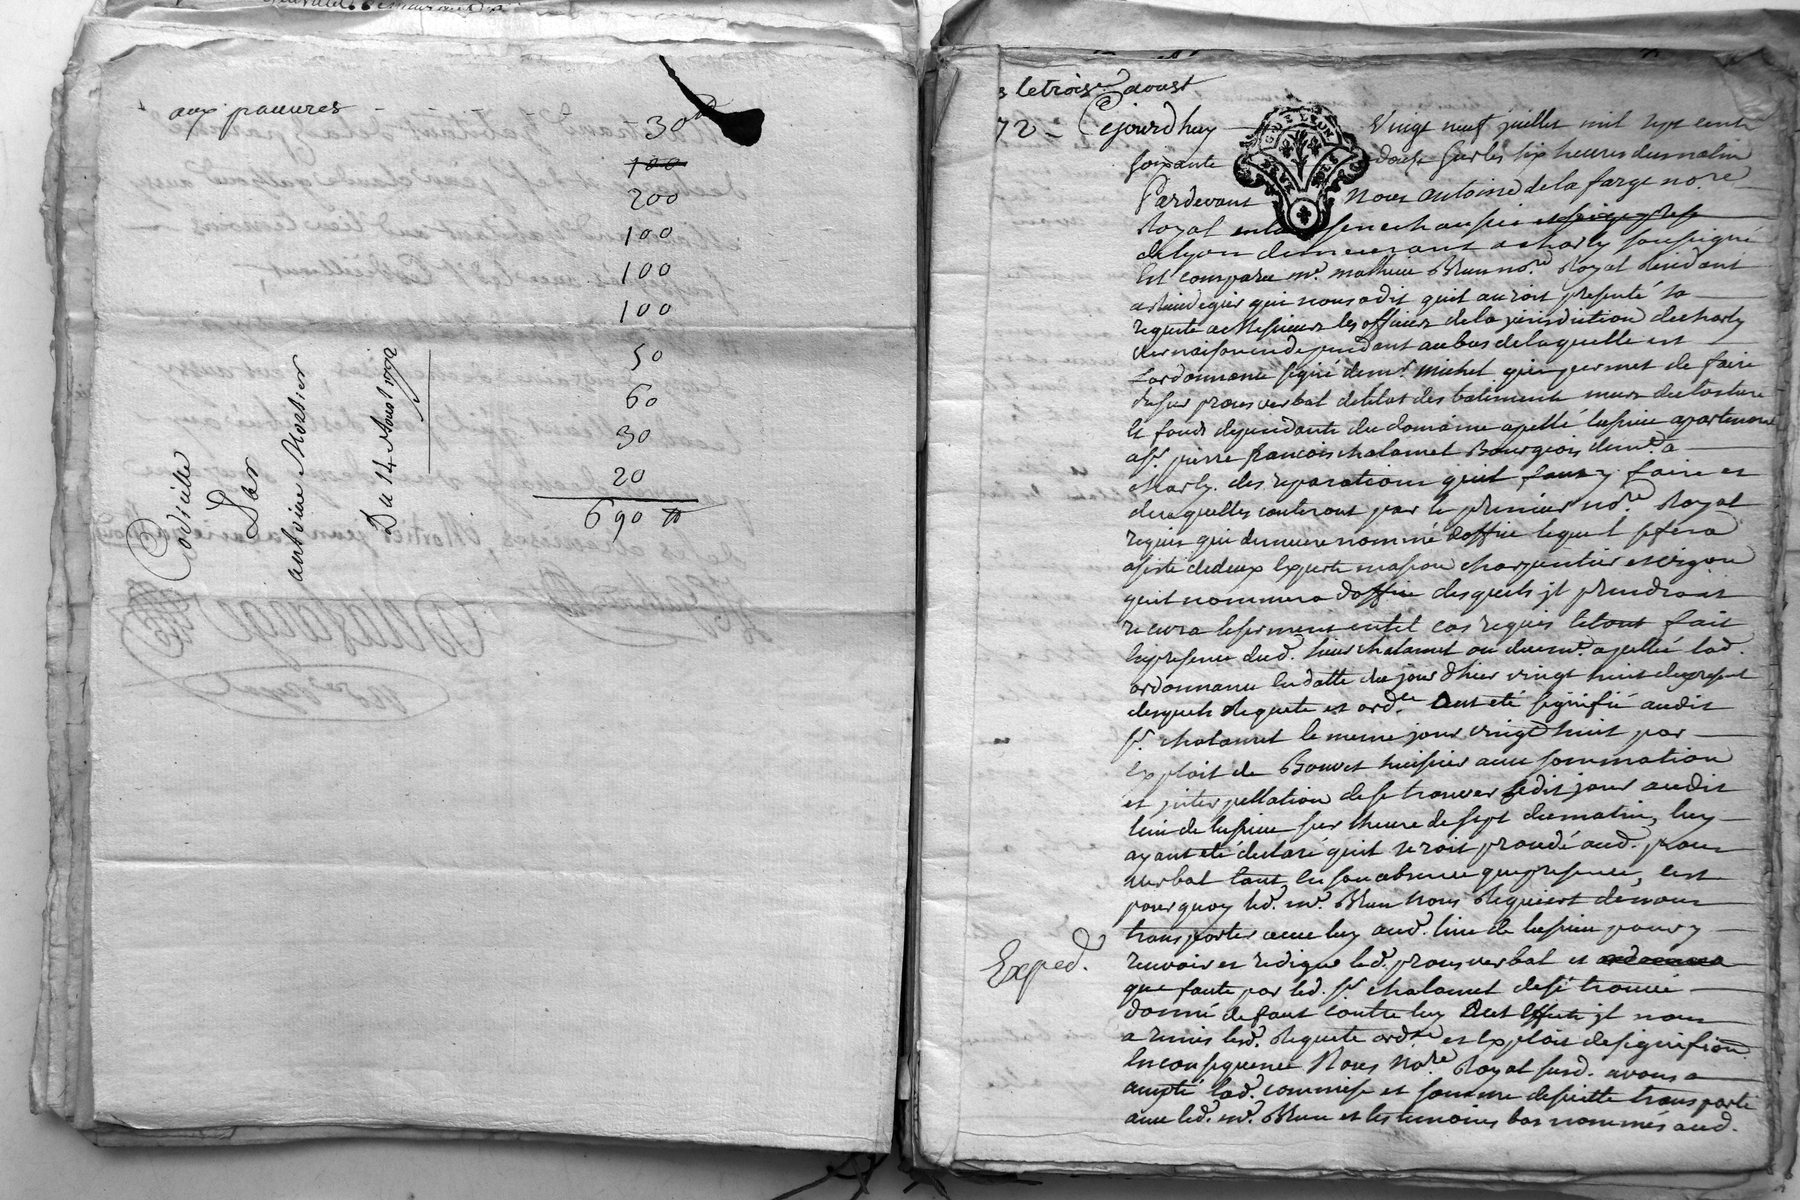 aux pauvres
30
100
200
100
100
100
50
60
30
20
690 tt
Codicille
Par
antoine Mortier
Du 14 Aoust 1772
le troise aoust
72 - Cejourdhuy Vingt neuf juillet mil sept cents
soixante douze sur les six heures du matin
Pardevant Nous antoine de la farge nore
Royal en la senechaussée
de lyon demeurant a charly soussigné
Est comparu mr. mathieu Brun nore Royal Residant
qui nous a dit quil auroit presenté sa
requete a Messieurs les officiers de la jurisdiction de charly
au bas de laquelle est
Lordonnance signé de mr. michel qui permet de faire
dresser proces verbal de letat des batiments murs de cloture
et fonds dependants du domaine apellé lepine apartenant
a sr. pierre francois chalamel Bourgeois demt. a
charly. des reparations quil faut y faire et
par le premier nore Royal
requis qui demeure nommé doffice lequel se fera
assisté de deux Experts masson charpentier et vigneron
quil nommera doffice desquels il prendra et
recevra le serment en tel cas requis le tout fait
En presence dud. sieur chalamel ou duement apellé lad.
ordonnance En datte du jour dhier vingt huit du present
desquels Requete et ordce. Ont eté signifié audit
sr. chalamel le meme jour vingt huit par
Exploit de Bouvet huissier avec sommation
et interpellation de se trouver cedit jour audit
lieu de lepine sur lheure de sept du matin, luy
ayant eté declaré quil seroit procedé aud. proces
verbal tant en son absence que presence, cest
pourquoy led. mr. Brun Nous Requiert de nous
transporter avec luy aud. lieu de lepine pour y
Exped.
recevoir et rediger led. proces verbal et
que faute par led. sr. chalamel de se trouver
donné defaut contre luy a cet Effet il nous
a remis lesd. Requete ordce et Exploit de signifion
En consequence Nous Nore. Royal susd. avons a
cepté lad. commise et sommes de suitte transporté
avec led. mr. Brun et les temoins bas nommés aud.